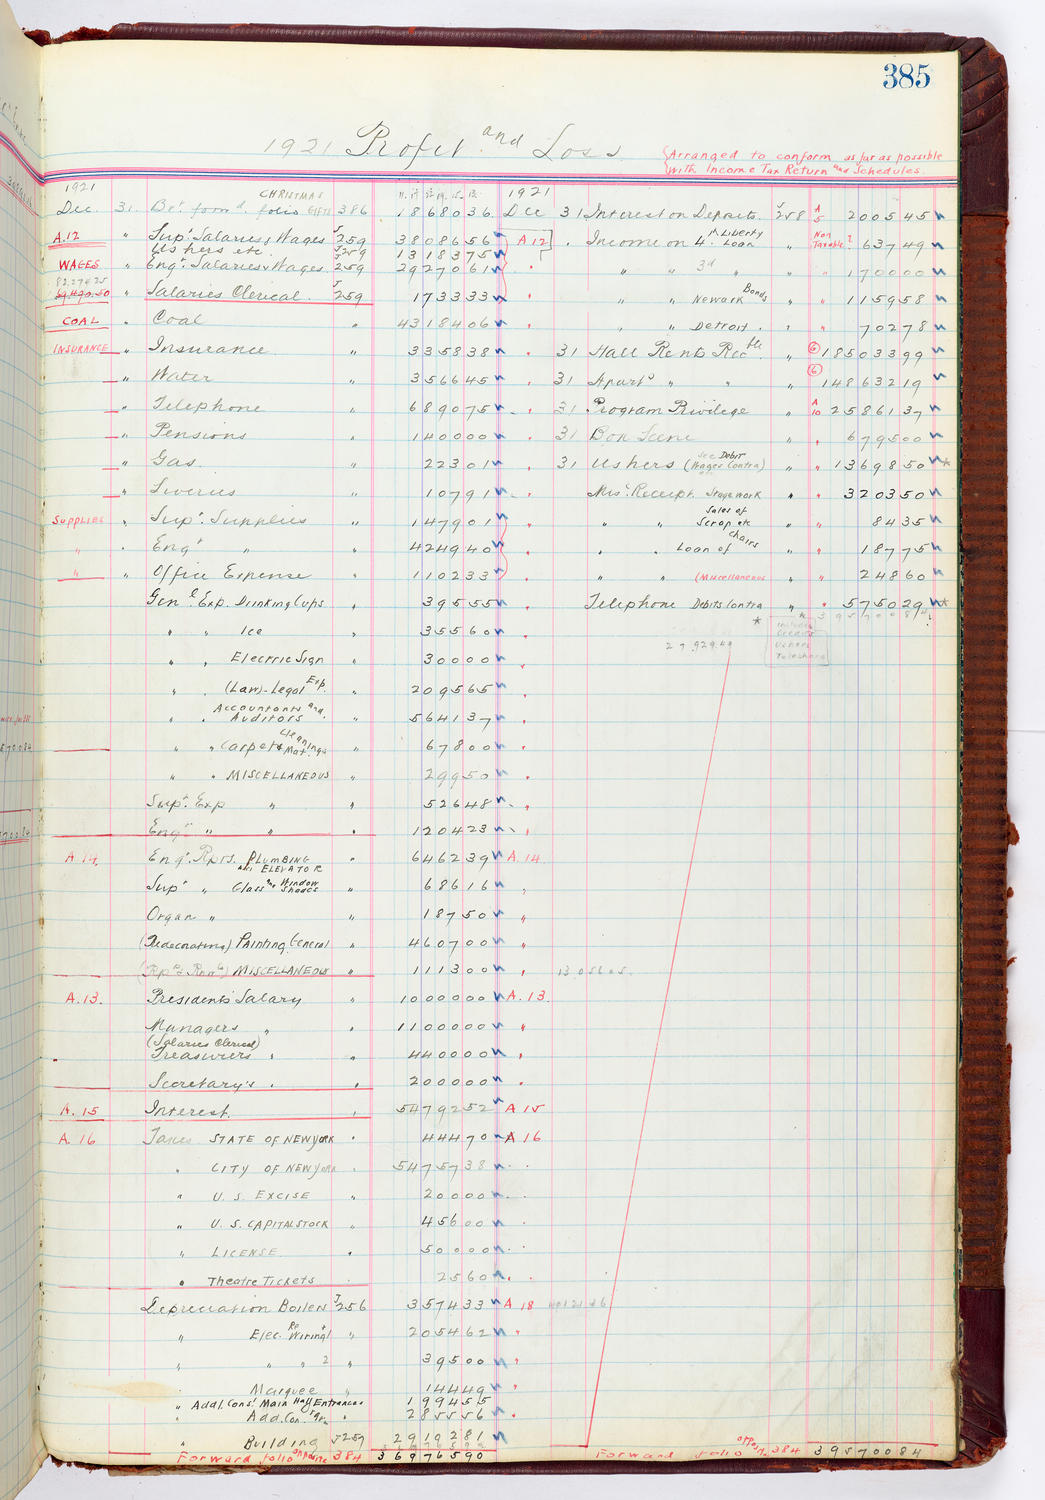 385
1921 Profit and Loss
{Arranged to conform as far as possible
with Income Tax Return and Schedules.
1921 CHRISTMAS 1921
Dec. 31. Bot. forwd. folio GIFTS 386 1868036 Dec 31 Interest on Deposits J258 A5 200545
A.12 " Supt. Salaries & Wages J259 3808656 A12 . Income on 4th Liberty Loan " Non Taxable? 63749
Ushers etc. J259 1318375
WAGES " Engr. Salaries & Wages 259 2927061 " " " 3d " " " 170000
69490.50 " Salaries Clerical. J259 173333 " " " Newark Bonds " " 115958
COAL . Coal " 4318406 " " " Detroit . " " 70278
INSURANCE " Insurance " 335838 " 31 Hall Rents Recble " 6 18503399
" Water " 356645 " 31 Apart's " " " 6 14863219
" Telephone " 689075 " 31 Program Privilege " A10 2586137
" Pensions " 140000 " 31 Bon Scene " " 679500
" Gas " 22301 " 31 Ushers (see Debit Wages Contra) " " 1369850 *
" Liveries " 10791 " Misc. Receipt. Stage work " " 320350
SUPPLIES " Supt. Supplies " 147901 " " " Sales of Scrap etc " " 8435
" . Engr " " 424940 " " " Loan of Chairs " " 18775
" " Office Expense " 110233 " " " (Miscellaneous " " 24860
Genl. Exp. Drinking Cups " 39555 " Telephone Debits Contra " " 575029 *
" " Ice " 35560 * * 39570084
" " Electric Sign " 30000 " 27,929.49 Includes Credits Ushers Telephone
" . (Law)-Legal Exp. " 209565 "
" . Accountants and Auditors . " 564137 "
" " Carpet & Mat. Cleanings " 67800 "
" " MISCELLANEOUS " 29950 "
Supt. Exp " " 52648 "
Engr " " " 120423 "
A.14. Engr. Rprs. PLUMBING and ELEVATOR " 646239 A.14
Supt " Glass and Window Shades " 68616 "
Organ " " 18750 "
(Redecorating) Painting General " 460700 "
(Rps & Rnwls) MISCELLANEOUS " 111300 " 1305605.
A.13. Presidents' Salary " 1000000 A.13.
Managers " " 1100000 "
(Salaries Clerical)
Treasurers " " 440000 "
Secretary's " " 200000 "
A.15 Interest " 5479252 A 15
A.16 Taxes STATE OF NEW YORK " 44470 A 16
" CITY OF NEW YORK " 5475738
" U. S. EXCISE " 20000
" U. S. CAPITAL STOCK " 45600
" LICENSE " 50000
" Theatre Tickets 2560
Depreciation Boilers J256 357433 A 18
" Elec. Re Wiring 1 " 205462 "
" " " 2 " 39500 "
" Marquee " 14449 "
" Addl. Cons't Main Hall Entrances 199455
" Add. Con. " 285556 "
" Building J259 2919281
Forward folio opposite 384 36976590 Forward folio opposite 384 39570084